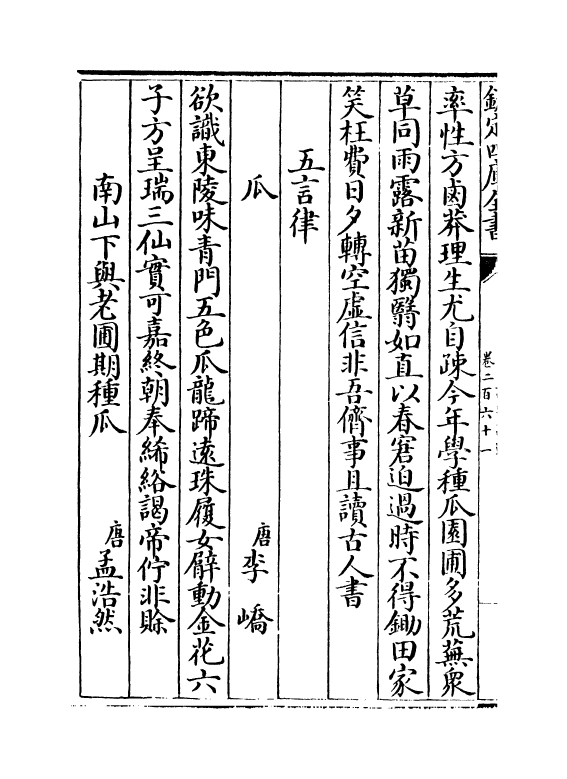 欽定四庫全書
卷二百六十一
率性方鹵莽理生尤自疎今年學種瓜園圃多荒蕪衆
草同雨露新苗獨翳如直以春窘迫過時不得鋤田家
笑枉費日夕轉空虛信非吾儕事且讀古人書
五言律
瓜 唐李嶠
欲識東陵味青門五色瓜龍蹄遠珠履女臂動金花六
子方呈瑞三仙實可嘉終朝奉絺綌謁帝佇非賒
南山下與老圃期種瓜 唐孟浩然